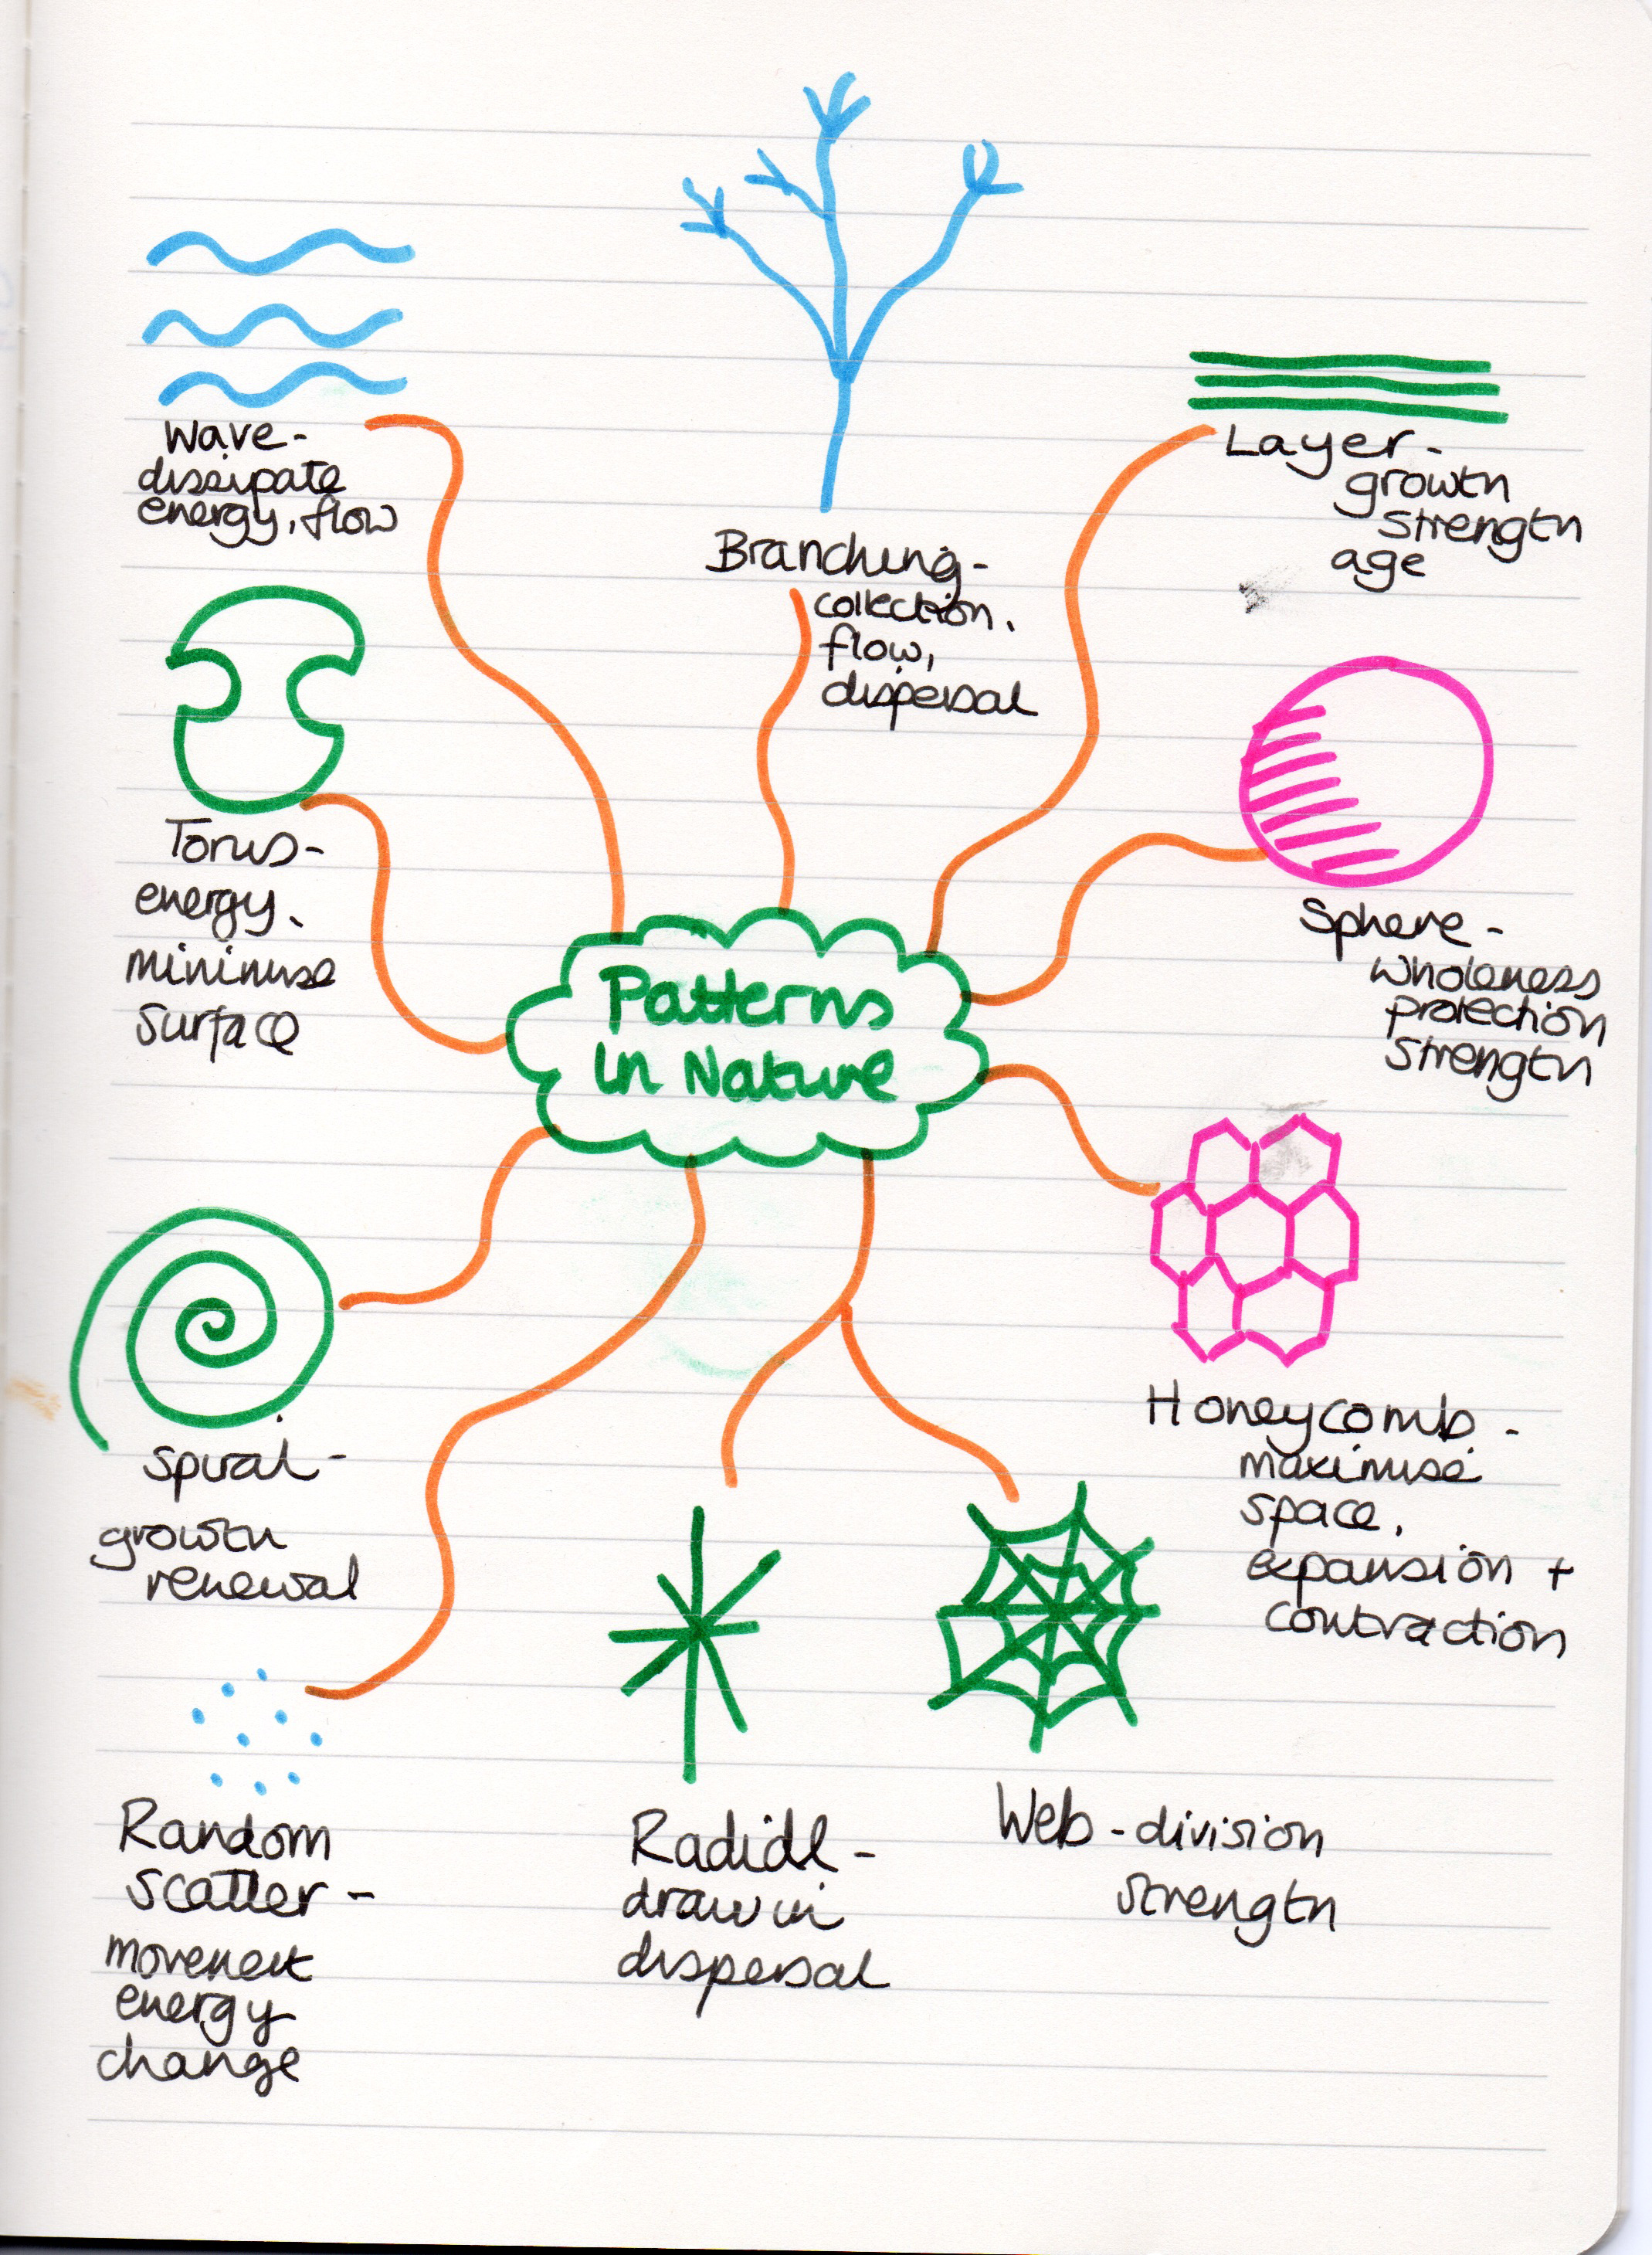 Wave-
dissipate
energy, flow
Branching-
collection,
flow,
dispersal
Layer-
growth
strength
age
Torus-
energy,
minimise
surface
Sphere-
wholeness
protection
strength
Patterns
in Nature
Spiral-
growth
renewal
Honeycomb-
maximise
space,
expansion +
contraction
Random
scatter-
movement
energy
change
Radial-
draw in
dispersal
Web-division
strength